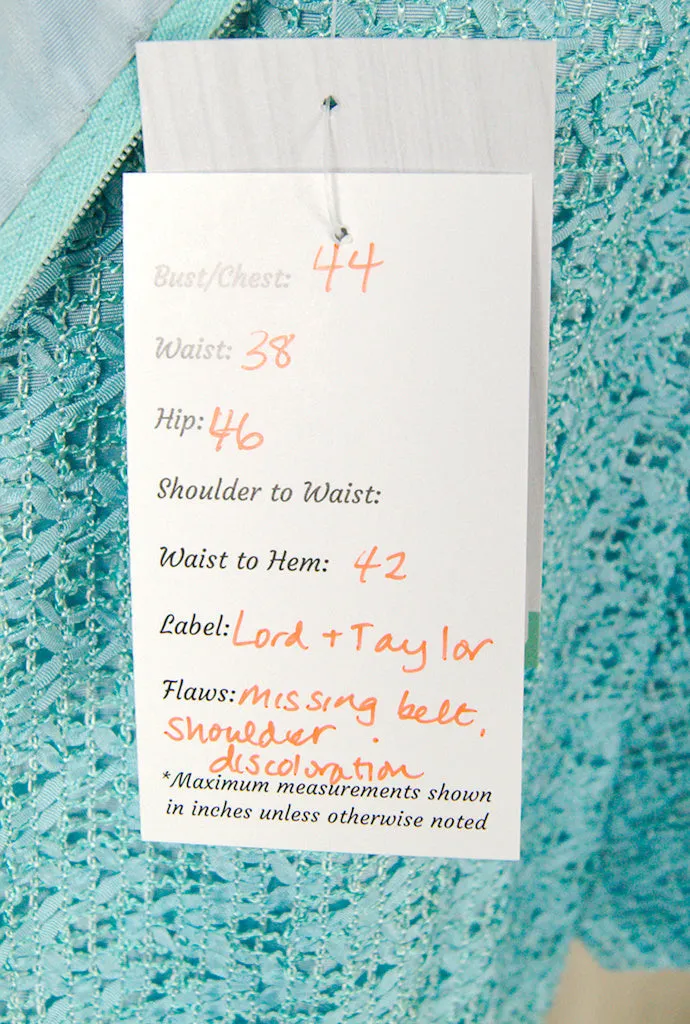 Bust/Chest: 44
Waist: 38
Hip: 46
Shoulder to Waist:
Waist to Hem: 42
Label: Lord + Taylor
Flaws: missing belt,
shoulder
discoloration
*Maximum measurements shown
in inches unless otherwise noted